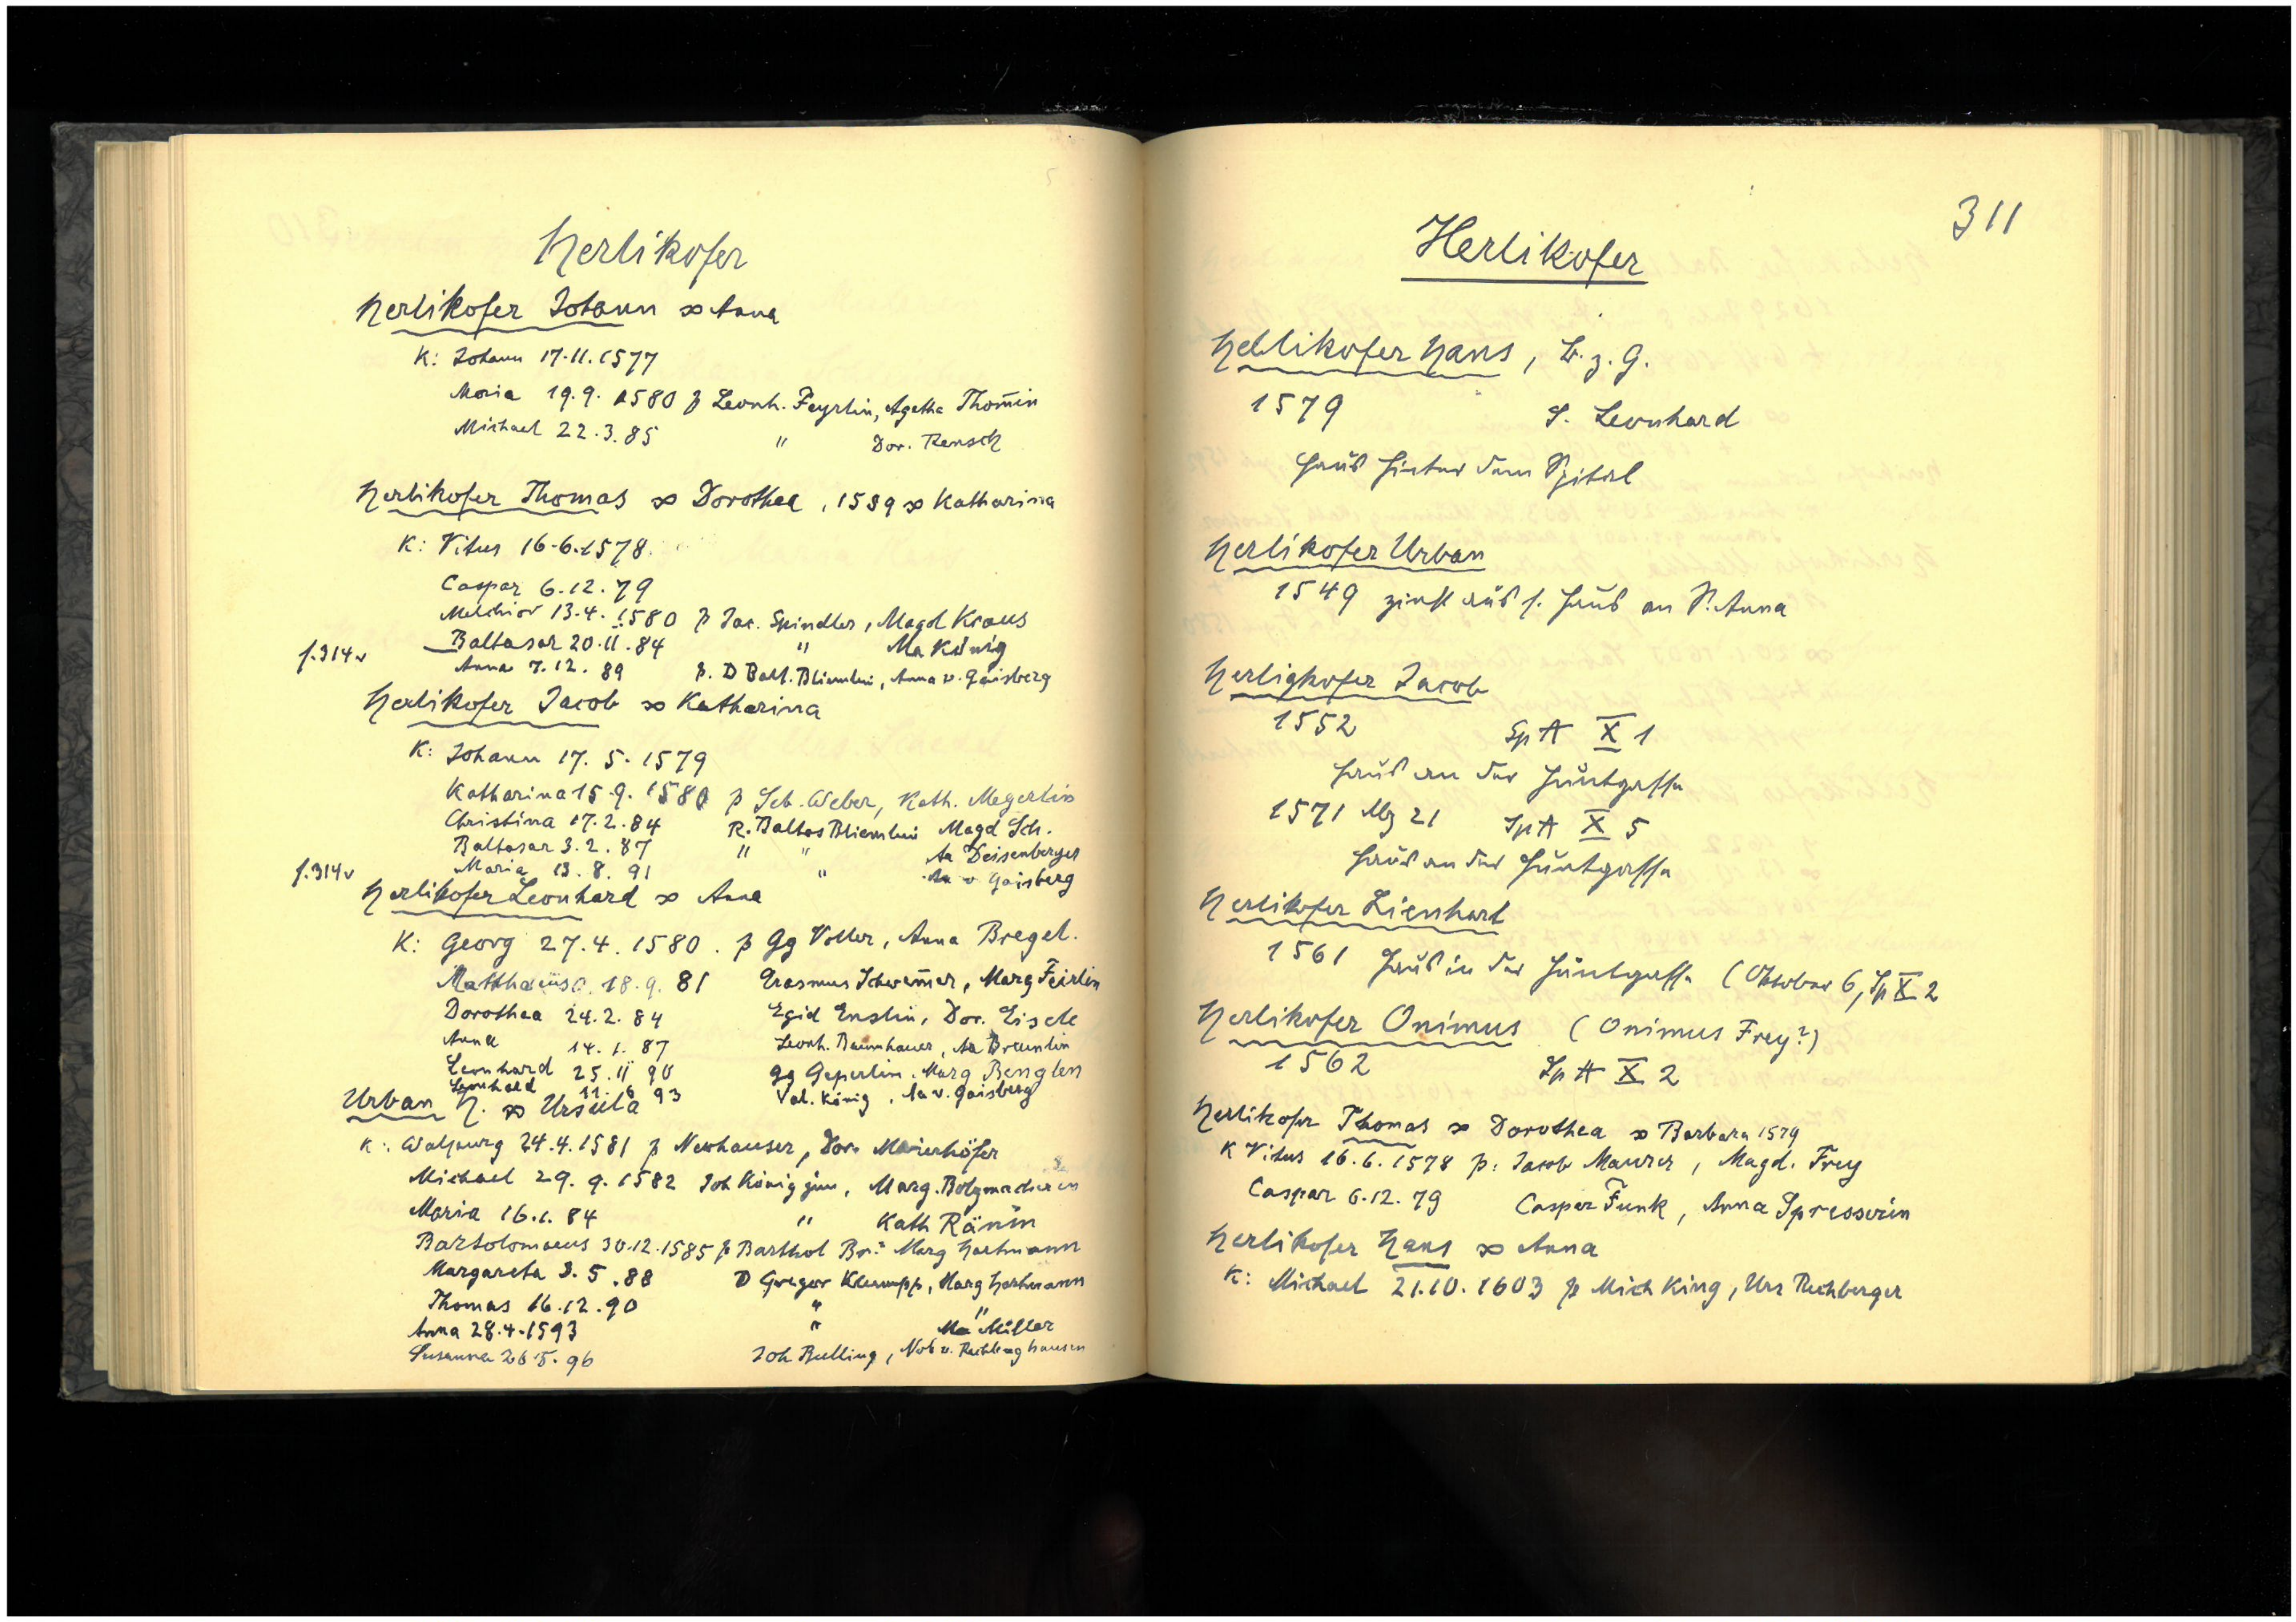 Herlikofer
Herlikofer Johann ∞ Anna
K: Johann 17.11.1577
Maria 19.9.1580 p Leonh. Feyrlin, Agatha Thom̄in
Michael 22.3.85 " Dor. Rensch
Herlikofer Thomas ∞ Dorothea, 1589 ∞ Katharina
K: Vitus 16.6.1578
Caspar 6.12.79
Melchior 13.4.1580 p Jac. Spindler, Magd Kraus
f.314v Baltasar 20.11.84 " Ma König
Anna 7.12.89 p. D Balt. Bliemlin, Anna v. Gaisberg
Herlikofer Jacob ∞ Katharina
K: Johann 17.5.1579
Katharina 15.9.1580 p Seb. Weber, Kath. Megerlin
Christina 17.2.84 R. Baltas Bliemlin Magd Sch.
Baltasar 3.2.87 " " Aa Deisenberger
f.314v Maria 13.8.91 " Aa v Gaisberg
Herlikofer Leonhard ∞ Anna
K: Georg 27.4.1580. p Gg Voller, Anna Bregel.
Matthaeus 18.9.81 Erasmus Schwem̄er, Marg Feirlin
Dorothea 24.2.84 Egid Enslin, Dor. Eisele
Anna 14.1.87 Leonh. Baumhauer, Aa Breunlin
Leonhard 25.11 90 Gg Geperlin, Marg Benglen
Leonhard 11.6 93 Val. König, Aa v. Gaisberg
Urban H. ∞ Ursula
K: Walpurg 24.4.1581 p Newhauser, Dor. Maierhöfer
Michael 29.9.1582 Joh König jun, Marg. Bolzmacherin
Maria 16.1.84 " Kath Ränin
Bartolomaeus 30.12.1585 p Barthol Br.? Marg Hartmann
Margareta 3.5.88 D Gregor Klemupp, Marg Hartmann
Thomas 16.12.90 " "
Anna 28.4.1593 " Ma Müller
Susanna 26.5.96 Joh Bulling, Nob v. Rechberghausen
311
Herlikofer
Heblikofer Hans, B. z. G.
1579 S. Leonhard
Haus hinter dem Spital
Herlikofer Urban
1549 zinst aus s. Haus an S. Anna
Herligkofer Jacob
1552 Sp A X 1
Haus an der Huntgasse
1571 Mz 21 Sp A X 5
Haus an der Huntgasse
Herlikofer Lienhart
1561 Haus in der Huntgasse (Oktober 6, Sp X 2
Herlikofer Onimus (Onimus Frey?)
1562 Sp A X 2
Herlikofer Thomas ∞ Dorothea ∞ Barbara 1579
K Vitus 16.6.1578 p: Jacob Maurer, Magd. Frey
Caspar 6.12.79 Caspar Funk, Anna Spresserin
Herlikofer Hans ∞ Anna
K: Michael 21.10.1603 p Mich King, Urs Rechberger